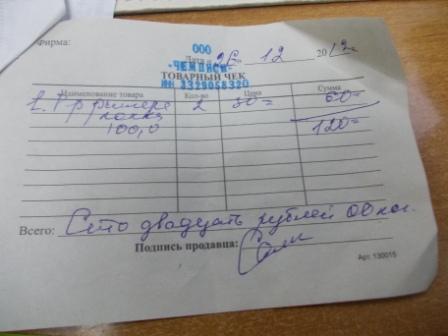 Фирма:
ООО
Дата « 26 » 12 2012г
"ЧЕМПИОН"
ТОВАРНЫЙ ЧЕК
ИНН 2329058320
Наименование товара Кол-во Цена Сумма
1. 2 30= 60=
100,0 120=
Всего: Сто двадцать рублей 00 коп.
Подпись продавца:
Арт. 130015